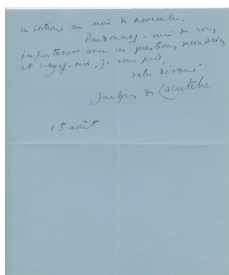 en éditions au mois de novembre.
Pardonnez-moi de vous
importuner avec ces questions secondaires
et croyez-moi, je vous prie,
votre dévoué
Jacques de Lacretelle
15 août